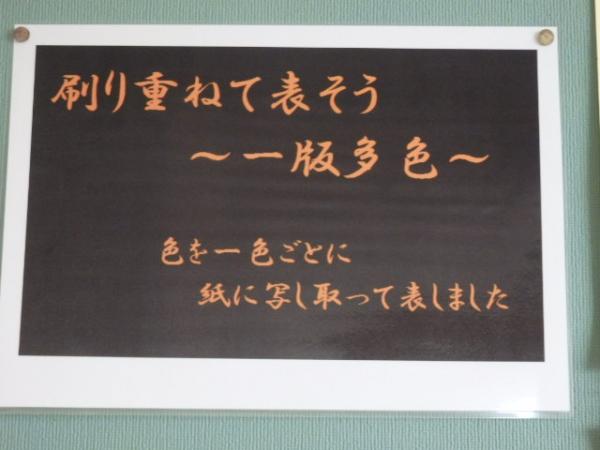 刷り重ねて表そう
～一版多色～
色を一色ごとに
紙に写し取って表しました